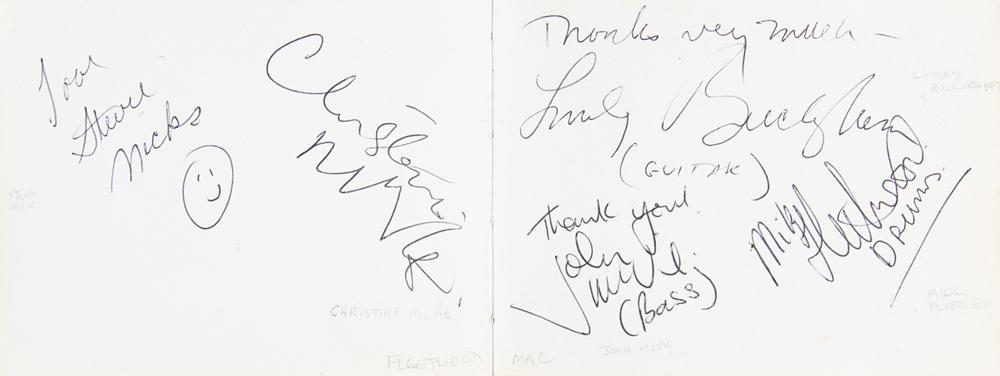 Love
Stevie
Nicks
STEVIE
Christine
McVie
CHRISTINE MCVIE
FLEETWOOD
Thanks very much —
Lindsey Buckingham
LINDSEY
BUCKINGHAM
(GUITAR)
Thank you!
John
McVie
(Bass)
Mick Fleetwood
DRUMS.
MICK
FLEETWOOD
JOHN MCVIE
MAC